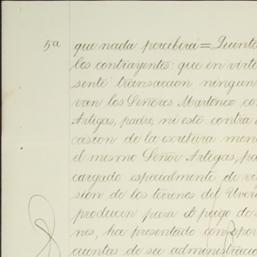 5ª que nada percibirá = Quinto
los contrayentes que en virtu
sente transaccion ningun
van los Señores Martinez con
Artigas, padre, ni este contra
casion de la escritura men
el mismo Señor Artigas, pa
cargado especialmente de
sion de los terrenos del
producen para el pago de
nes, ha presentado con
cuentas de su administracio